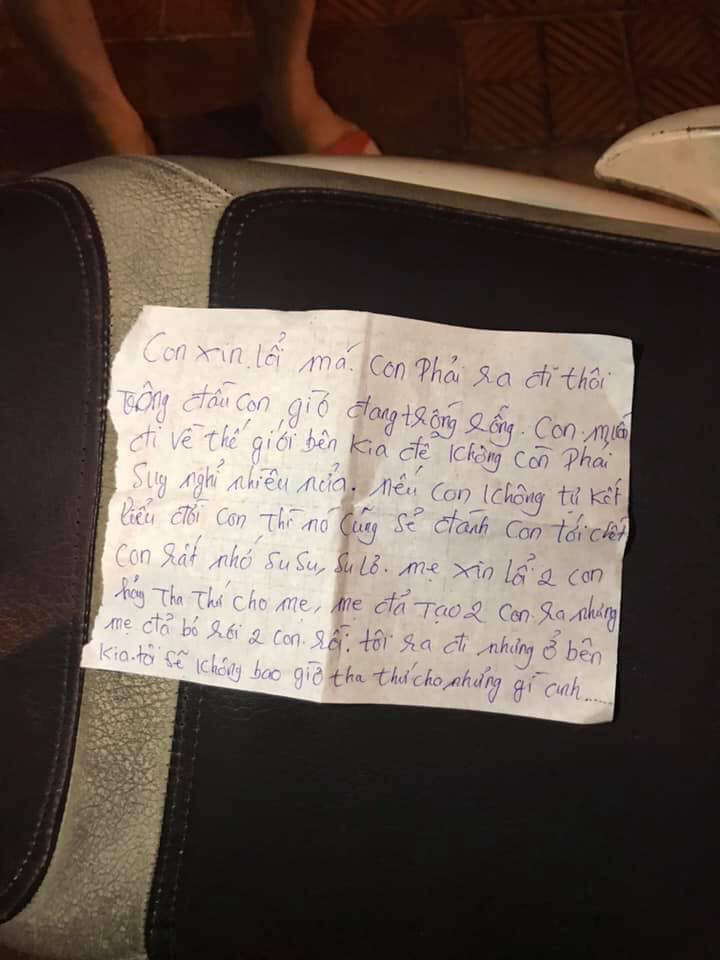 Con xin lổi má. Con phải ra đi thôi
trong đầu con giờ đang trống rổng. Con muốn
đi về thế giới bên kia để không còn phải
suy nghỉ nhiều nửa. nếu con không tự kết
liểu đời con thì nó cũng sẻ đánh con tới chết
con rất nhớ SuSu, Su Lô. mẹ xin lổi 2 con
hảy tha thứ cho mẹ, mẹ đả tạo 2 con ra nhưng
mẹ đả bỏ rơi 2 con rồi. tôi ra đi nhưng ở bên
kia tôi sẽ không bao giờ tha thứ cho những gì anh......